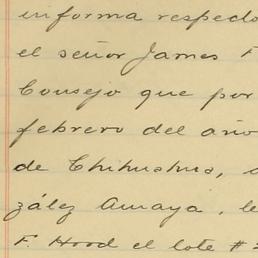 informa respecto
el señor James F
Consejo que por
febrero del año
de Chihuahua,
zález Amaya, le
F. Hood el lote #